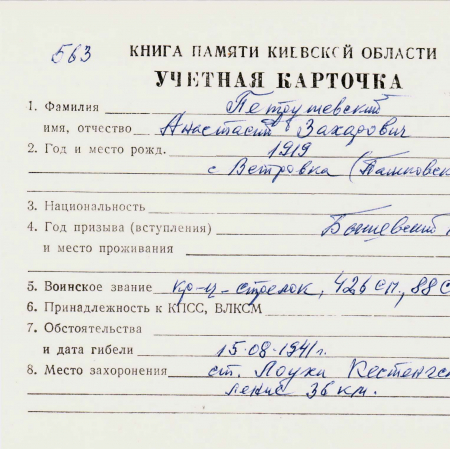 563
КНИГА ПАМЯТИ КИЕВСКОЙ ОБЛАСТИ
УЧЕТНАЯ КАРТОЧКА
1. Фамилия Петрушевский
имя, отчество Анастасий Захарович
2. Год и место рожд. 1919
с Ветровка (Ташковск
3. Национальность
4. Год призыва (вступления) Бышевский
и место проживания
5. Воинское звание кр-ц-стрелок, 426 сп, 88 с
6. Принадлежность к КПСС, ВЛКСМ
7. Обстоятельства
и дата гибели 15-08-1941г.
8. Место захоронения ст. Лоухи Кестенгс
ление 36 км.